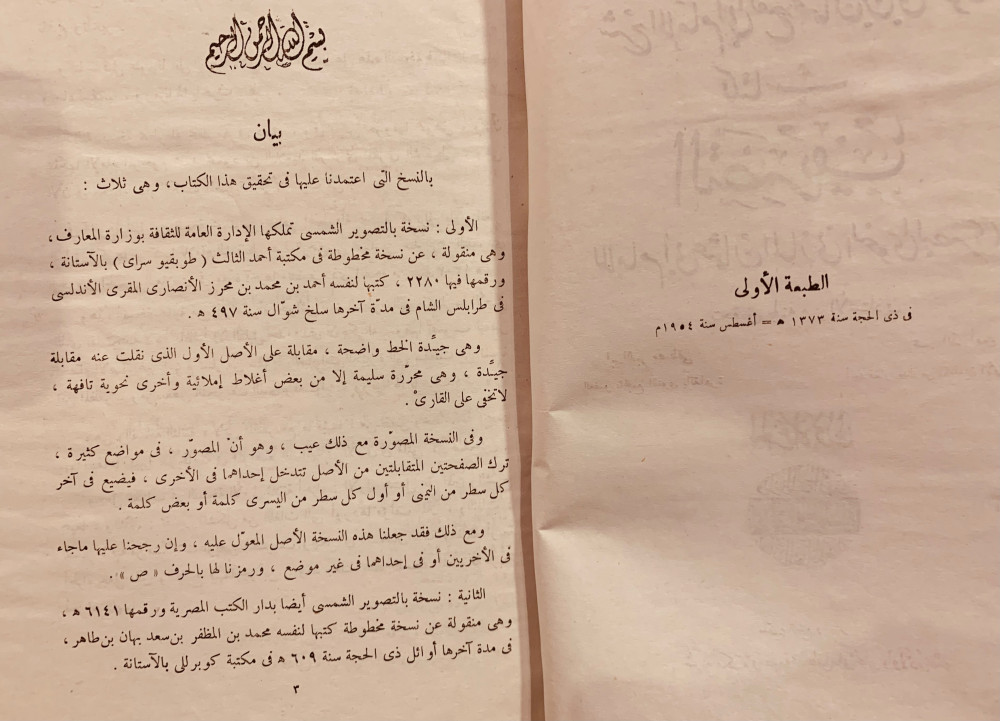 الطبعة الأولى
فى ذى الحجة سنة ١٣٧٣ ھ = أغسطس سنة ١٩٥٤م
بسم الله الرحمن الرحيم
بيان
بالنسخ التى اعتمدنا عليها فى تحقيق هذا الكتاب، وهى ثلاث :
الأولى : نسخة بالتصوير الشمسى تملكها الإدارة العامة للثقافة بوزارة المعارف،
وهى منقولة ، عن نسخة مخطوطة فى مكتبة أحمد الثالث ( طوبقيو سراى ) بالآستانة ،
ورقمها فيها ٢٢٨٠ ، كتبها لنفسه أحمد بن محمد بن محرز الأنصارى المقرى الأندلسى
فى طرابلس الشام فى مدّة آخرها سلخ شوّال سنة ٤٩٧ ھ .
وهى جيِّدة الخط واضحة ، مقابلة على الأصل الأول الذى نقلت عنه مقابلة
جيِّدة ، وهى محرّرة سليمة إلا من بعض أغلاط إملائية وأخرى نحوية تافهة ،
لاتخفى على القارئ .
وفى النسخة المصوّرة مع ذلك عيب ، وهو أنّ المصوّر ، فى مواضع كثيرة ،
ترك الصفحتين المتقابلتين من الأصل تتدخل إحداهما فى الأخرى ، فيضيع فى آخر
كل سطر من اليمنى أو أول كل سطر من اليسرى كلمة أو بعض كلمة .
ومع ذلك فقد جعلنا هذه النسخة الأصل المعوّل عليه ، وإن رجحنا عليها ماجاء
فى الأخريين أو فى إحداهما فى غير موضع ، ورمزنا لها بالحرف « ص » .
الثانية : نسخة بالتصوير الشمسى أيضا بدار الكتب المصرية ورقمها ٦١٤١ ھ ،
وهى منقولة عن نسخة مخطوطة كتبها لنفسه محمد بن المظفر بن سعد بهان بن طاهر ،
فى مدة آخرها أوائل ذى الحجة سنة ٦٠٩ ھ فى مكتبة كوبرللى بالآستانة .
٣